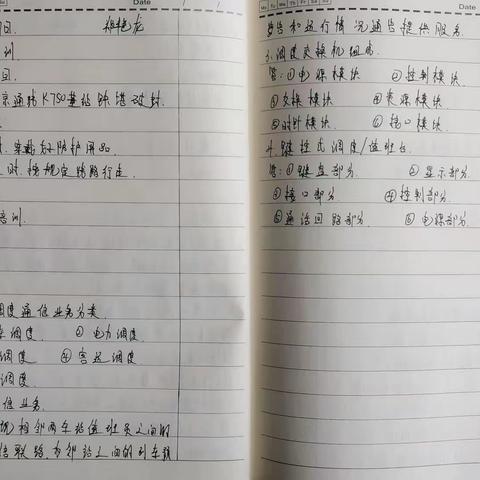 Date
日.
训
日.
京通线K750基站
穿戴好防护用品.
时.按规定路肩行走.
培训.
调度通信业务分类.
调度. ②电力调度.
调度 ④客运调度
调度.
信业务.
相邻两车站值班员之间的
邻站之间的列车
Mo Tu We Th Fr Sa Su
Date
和运行情况通告提供服务.
3.调度交换机组成.
答:①电源模块 ②控制模块
③交换模块 ④资源模块
⑤时钟模块. ⑥接口模块.
4.键控式调度/值班台.
答:①键盘部分. ②显示部分.
③接口部分 ④控制部分.
⑤通话回路部分. ⑥电源部分.